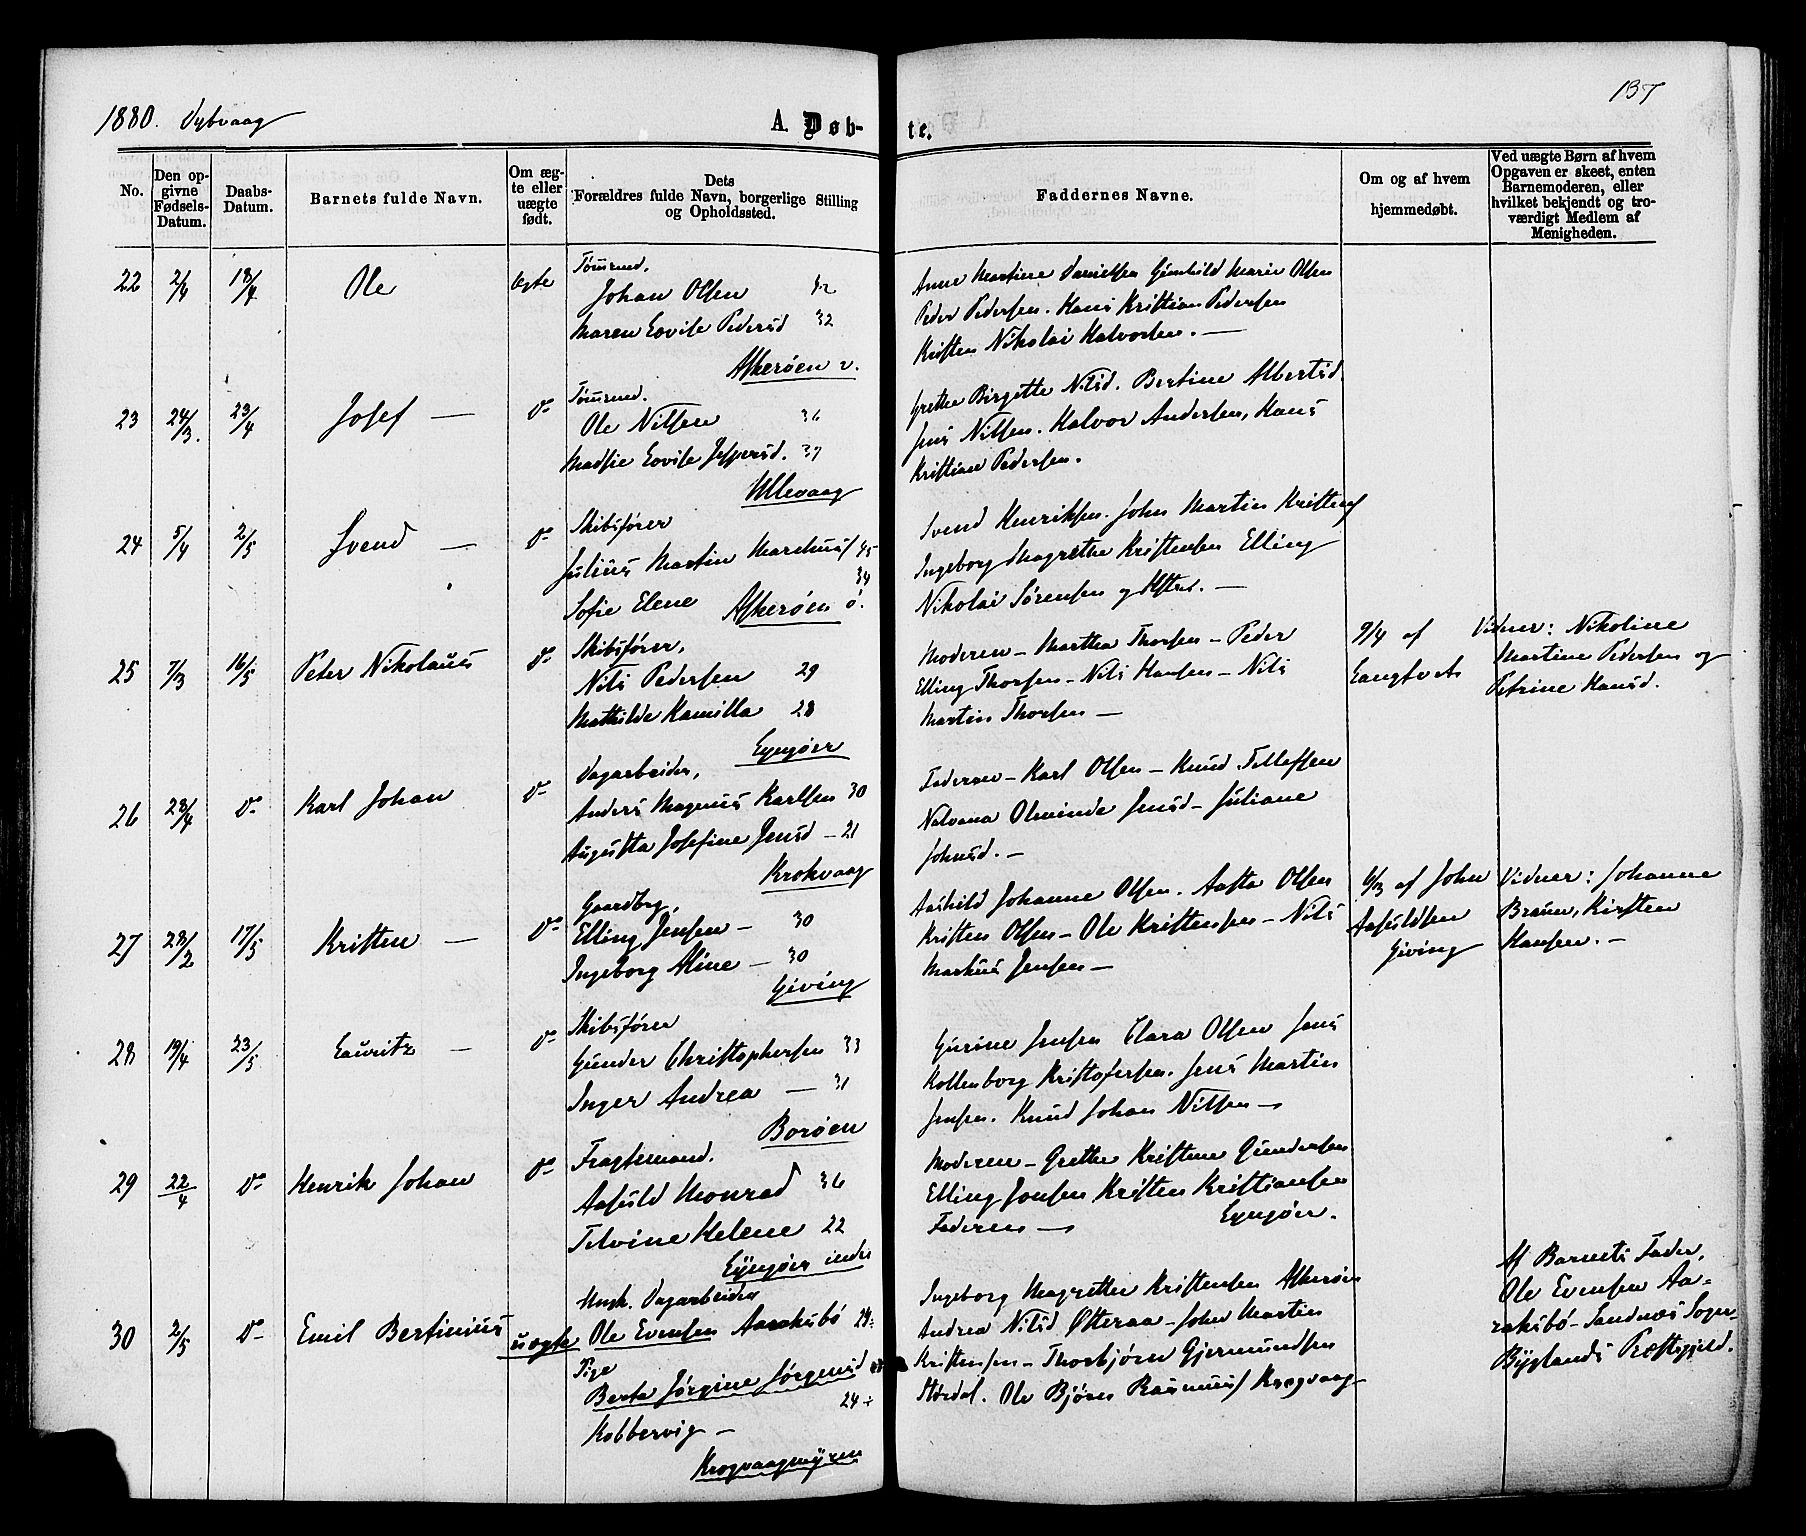 137
1880. Dybvaag
A. Døb-
te.
No.
Den op-
givne
Fødsels-
Datum.
Daabs-
Datum.
Barnets fulde Navn.
Om æg-
te eller
uægte
født.
Dets
Forældres fulde Navn, borgerlige Stilling
og Opholdssted.
Faddernes Navne.
Om og af hvem
hjemmedøbt.
Ved uægte Børn af hvem
Opgaven er skeet, enten
Barnemoderen, eller
hvilket bekjendt og tro-
værdigt Medlem af
Menigheden.
22 2/4 18/4 Ole Ægte
Tømmd.
Johan Olsen 42
Maren Lovise Pedersd 32
Askerøen v.
Anne Martine Danielsen Gunhild Marie Olsen
Peder Pedersen. Hans Kristian Pedersen
Kristen Nikolai Halvorsen. —
23 24/3. 23/4 Josef — do
Tømmd.
Ole Nilsen 36
Madsie Lovise Jeppesd. 37
Ullevaag
Grethe Birgitte Nilsd. Bertine Albertsd.
Jens Nilsen. Halvor Andersen, Hans
Kristian Pedersen.
24 5/4 2/5 Svend — do
Skibsfører
Julius Martin Marchus 45
Sofie Elene 34
Askerøen ø.
Svend Henriksen. John Martin Kristens
Ingeborg Magrethe Kristensen Elling
Nikolai Sørensen og Hstr. —
25 7/3 16/5 Peter Nikolaus do
Skibsfører,
Nils Pedersen 29
Mathilde Kamilla 28
Lyngøer
Moderen — Martha Thorsen — Peder
Elling Thorsen — Nils Hansen — Nils
Martin Thorsen —
9/4 af
Langfeldt
Vidner: Nikoline
Martine Pedersen og
Petrine Hansd.
26 28/4 do Karl Johan do
Dagarbeider,
Anders Magnus Karlsen 30
Augusta Josefine Jensd — 21
Krokvaag
Faderen — Karl Olsen — Knud Tellefsen
Nalvana Olminde Jensd — Juliane
Johnsd. —
27 28/2 17/5 Kristen — do
Gaardbrg,
Elling Jensen — 30
Ingeborg Aline — 30
Giving
Aashild Johanne Olsen. Aasta Olsen
Kristen Olsen — Ole Kristensen — Nils
Markus Jensen —
6/3 af John
Aasuldsen
Giving
Vidner: Johanne
Braun, Kirsten
Hansen. —
28 19/4 23/5 Lauritz — do
Skibsfører
Gunder Christophersen 33
Inger Andrea — 31
Borøen
Gurine Jensen Clara Olsen Jens
Kollenborg Kristofersen. Jens Martin
Jensen. Knud Johan Nilsen —
29 22/4 do Henrik Johan do
Fragtemand.
Aasuld Monrad 36
Telvine Helene 22
Lyngøer indre
Moderen — Grethe Kristine Gundersen
Elling Jensen Kristen Kristiansen
Faderen — Lyngøer.
30 2/5 do Emil Bertinius uægte
Ungk. Dagarbeider
Ole Evensen Aaraksbø 24:
Pige
Berta Jørgine Jørgensd
24 ÷
Kobbervig —
Krogvaagmyren
Ingeborg Magrethe Kristensen Askerøen
Andrea Nilsd Østeraa — John Martin
Kristensen — Thorbjørn Gjermundsen
Hordal. Ole Bjørn Rasmus Krogvaag
Af Barnets Fader,
Ole Evensen Aa-
raksbø — Sandnæs Sogn —
Byglands Præstegjeld.